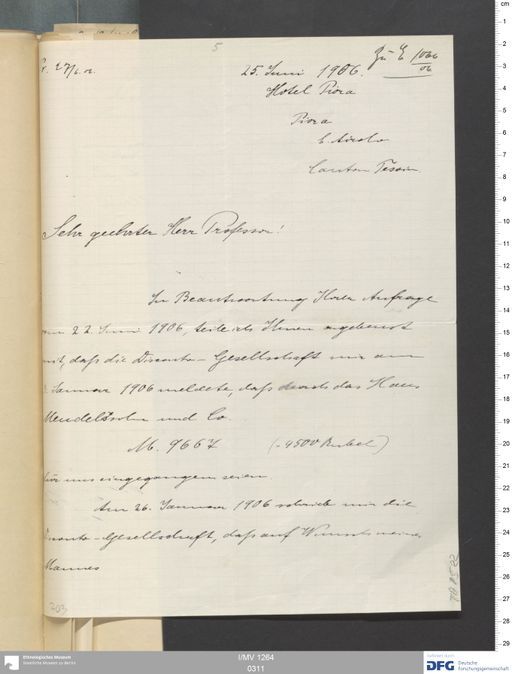 5
25. Juni 1906.
Hotel Piora
Piora
b. Airolo
Canton Tessin
Sehr geehrter Herr Professor!
In Beantwortung Ihrer Anfrage
vom 22. Juni 1906, teile ich Ihnen ergebenst
mit, daß die Disconto-Gesellschaft mir am
Januar 1906 meldete, daß durch das Haus
Mendelssohn und Co.
M. 9667 (= 4500 Rubel)
für uns eingegangen seien.
Am 26. Januar 1906 schrieb mir die
Disconto-Gesellschaft, daß auf Wunsch meines
Mannes
203
Ethnologisches Museum
Staatliche Museen zu Berlin
I/MV 1264
0311
DFG Deutsche
Forschungsgemeinschaft
cm
1
2
3
4
5
6
7
8
9
10
11
12
13
14
15
16
17
18
19
20
21
22
23
24
25
26
27
28
29